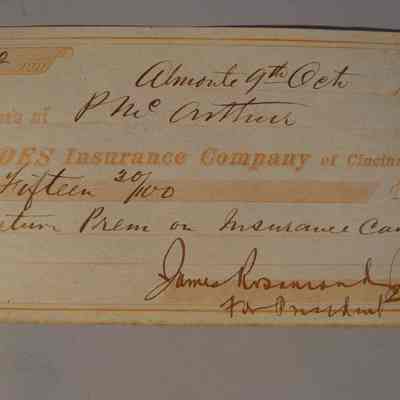 Almonte 9th Oct
of P Mc Arthur
OES Insurance Company of Cincin
Fifteen 20/100
eturn Prem on Insurance Can
James Rosamond
For President